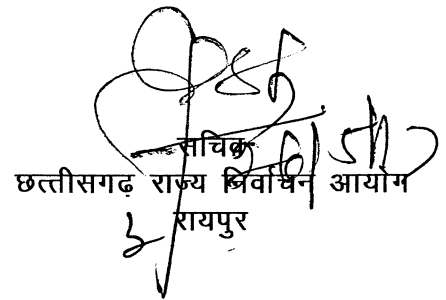 सचिव
छत्तीसगढ़ राज्य निर्वाचन आयोग
रायपुर